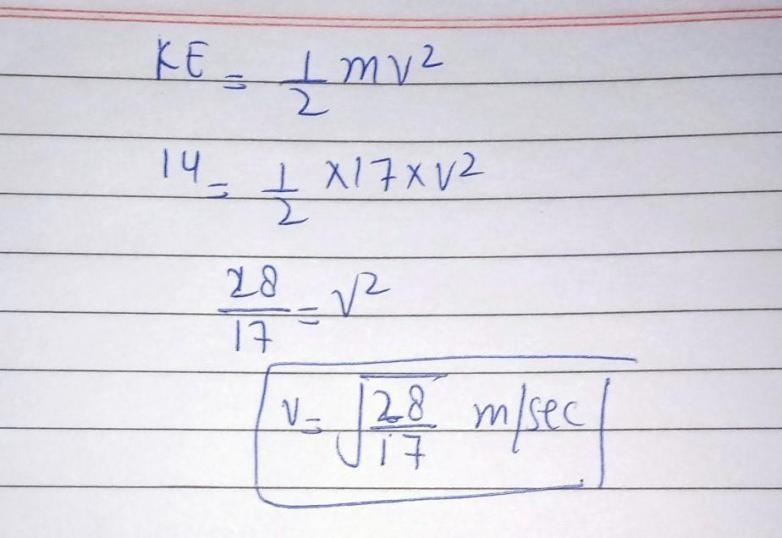 KE = 1/2 mv²
14 = 1/2 × 17 × v²
28/17 = v²
v = √(28/17) m/sec